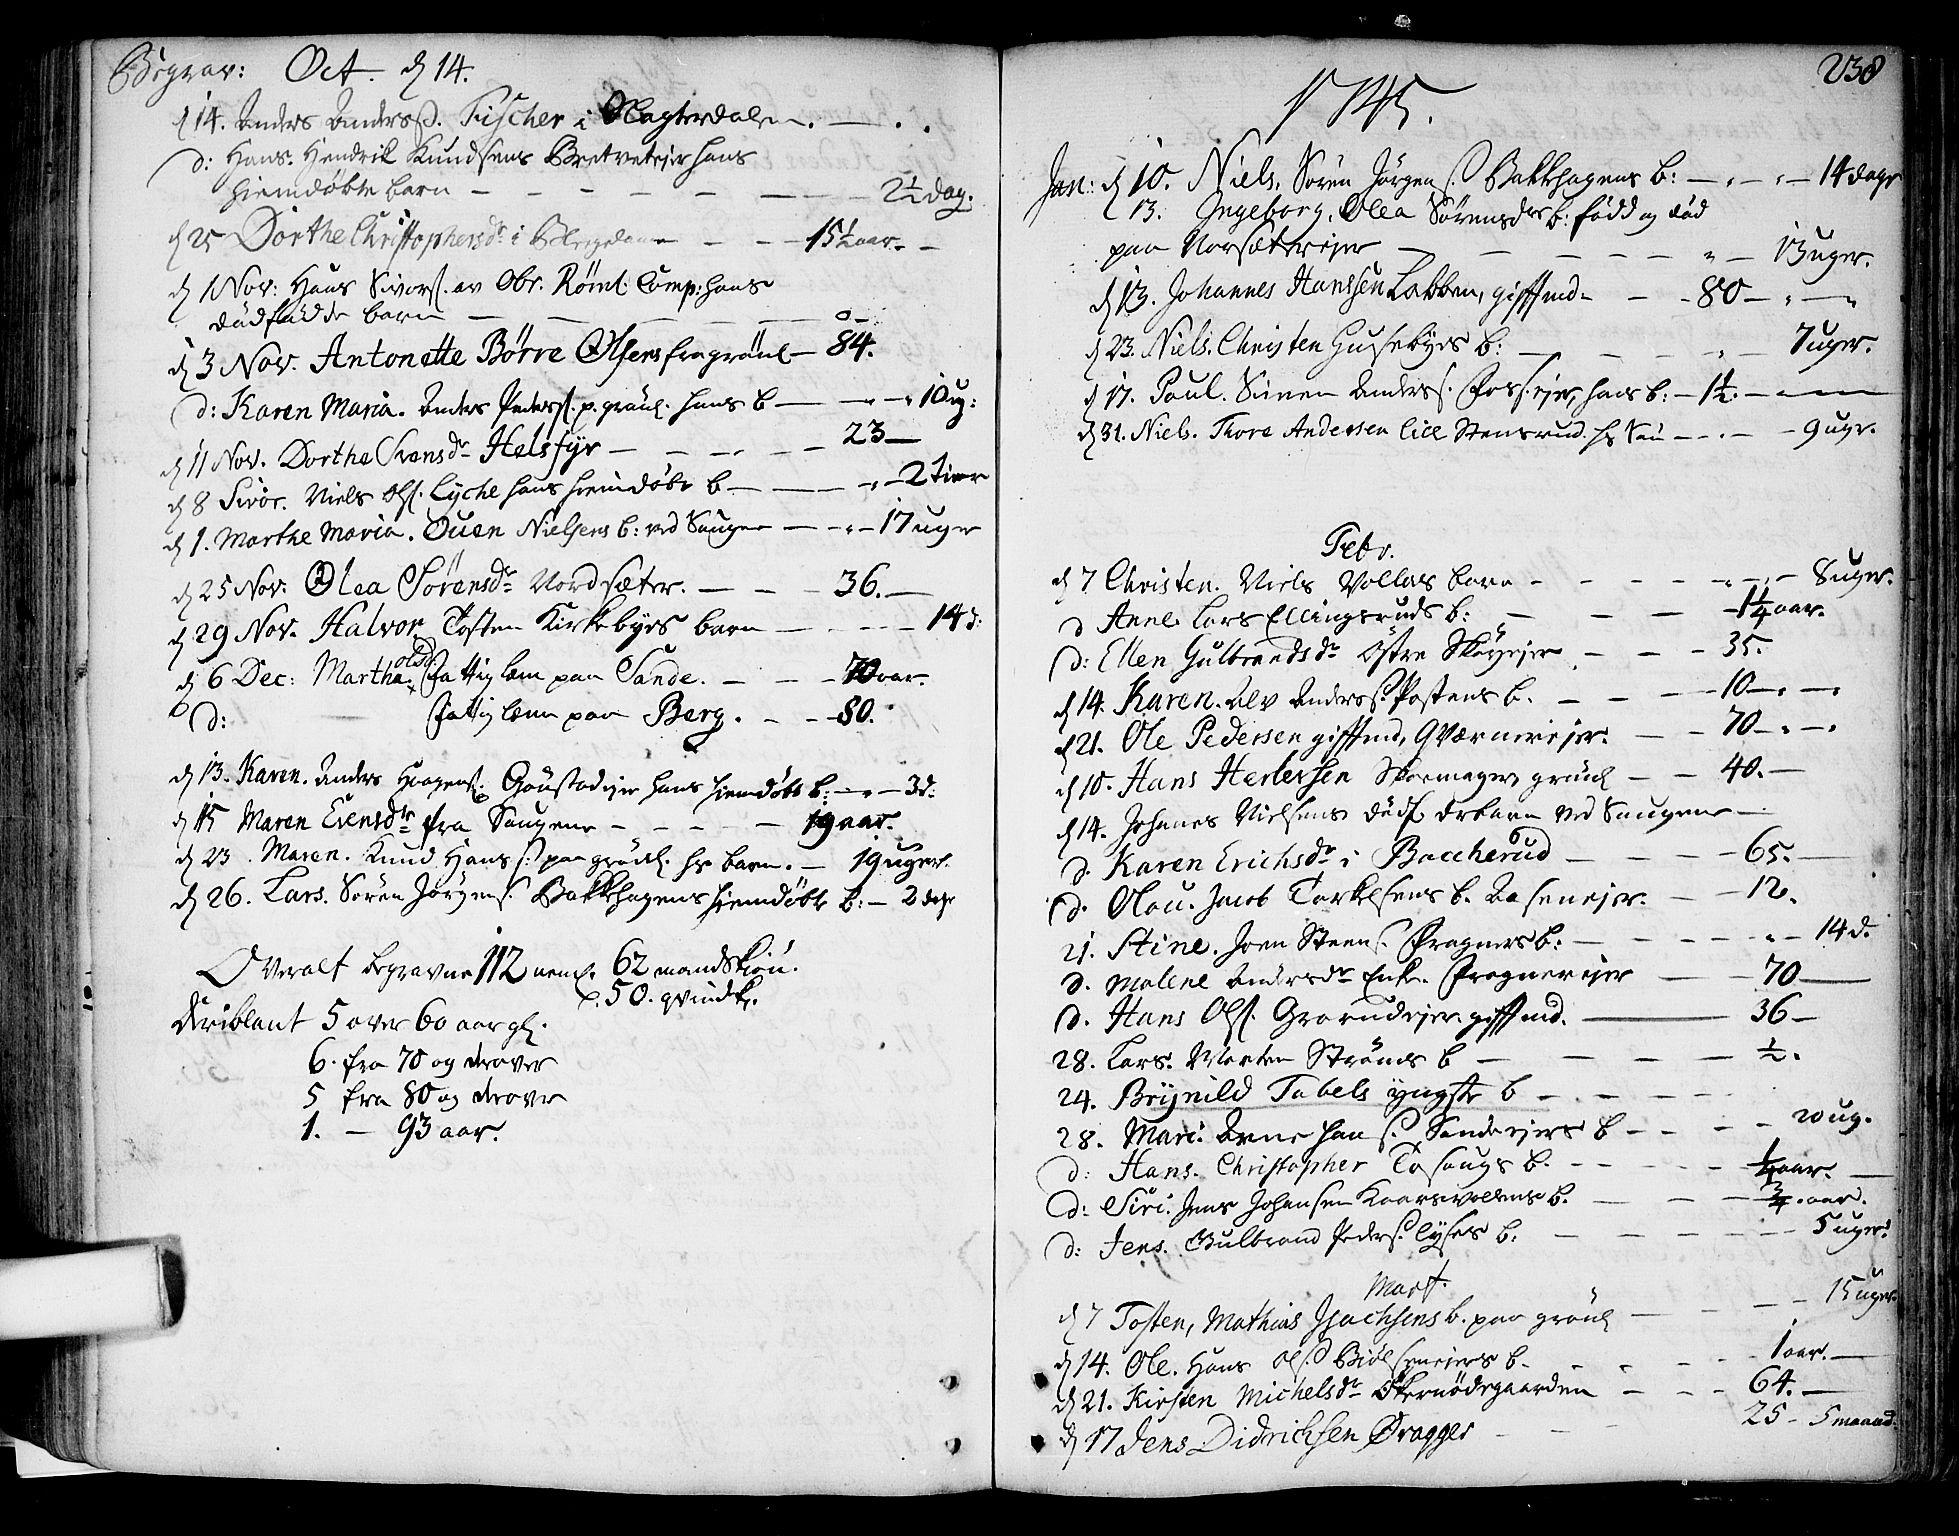 Begrav: Oct. d 14.
d 14. Anders Anderss. Fischer i Slagterdalen.
d: Hans. Hendrik Knudsens Bretvetejer hans
hiemdøbte barn 2 1/2 dag.
d 25 Dorthe Christophersdr i 15 1/2 aar.
d 1 Nov: Hans Sivers. av Obr. Røml: Comp: hans
dødfødde barn 0
d 3 Nov. Antonette Børre Olsens fra grønl 84.
d: Karen Maria. Anders Peders. p. grønl. hans b 10 ug:
d 11 Nov. Dorthe Svensdr Helsfyr 23
d 8 Sivør. Niels Ols. Lyche hans hiemdøbte b 2 Timer
d 1. Marthe Maria. Ouen Nielsens b: ved Saugene 17 uger
d 25 Nov. Olea Sørensdr Nordsæter. 36.
d 29 Nov. Halvor Tosten Kirkebyes barn 14 d:
d 6 Dec: Martha olsdr fattiglem paa Sande. 70 aar.
d: fattiglem paa Berg. 80.
d 13. Karen. Anders Haagens. Goustadejer hans hiemdøbte b: 3 d:
d 15 Maren Evensdtr fra Saugene 19 aar.
d 23. Maren. Knud Hans s: paa grønl. hs barn. 19 uger.
d 26. Lars. Søren Jørgens. Bakkehagens hiemdøbte b: 2 dage
Overalt begravne 112 neml. 62 mandskiøn.
50. qvindek.
deriblant 5 over 60 aar gl.
6. fra 70 og derover
5 fra 80 og derover
1. — 93 aar.
238
1745.
Jan: d 10. Niels. Søren Jørgens. Bakkehagens b: 14 dage
13. Ingeborg. Olea Sørensdrs b: född og död
paa Norsæterejer 13 uger.
d 13. Johannes Hanssen Labben, giftmd. 80
d 23. Niels. Christen Husebyes b: 7 uger.
d 17. Poul. Simen Anderss. Foss.ejer, hans b: 1 1/2.
d 31. Niels. Thore Andersen Lille Stensrud. hs Søn 9 ugr.
Febr.
d 7 Christen. Niels Vollas barn 8 uger.
d Anne Lars Ellingsruds b: 1 1/4 aar.
d: Ellen Gulbrandsdr Østre Skøyejer 35.
d 14. Karen. Alv Anderss. Postens b. 10
d 21. Ole Pedersen giftmd, Qværnerejer. 70
d 10. Hans Herbersen Skoemager grønl 40.
d 14. Johanes Nielsens dødf. drbarn ved Saugene
d. Karen Erichsdr i Boccherud 65.
d. Olou. Jacob Torkelsens b. Aasenejer. 12.
21. Stine. Joen Steens. Pragners b: 14 d.
d. Malene Andersdr Enke. Prognerejer 70
d. Hans Ols. Grorudejer giftmd. 36
28. Lars. Morten Strøms b 1/2.
24. Brynild Tabels yngste b
28. Mari. Arne Hans. Sandeejers b 20 ug.
d: Hans. Christopher Tosaugs b. 1/4 aar.
d: Siri. Jens Johansen Kaarsvollens b. 3/4 aar.
d: Jens. Gulbrand Peders. Lyses b. 5 uger.
Mart.
d 7 Tosten, Mathias Isachsens b. paa grønl 15 uger.
d 14. Ole. Hans Ols. Biølsenejers b. 1 aar.
d 21. Kirsten Michelsdr Økernödegaarden 64.
d 17 Jens Didrichsen Dragger 25 5 maaned.